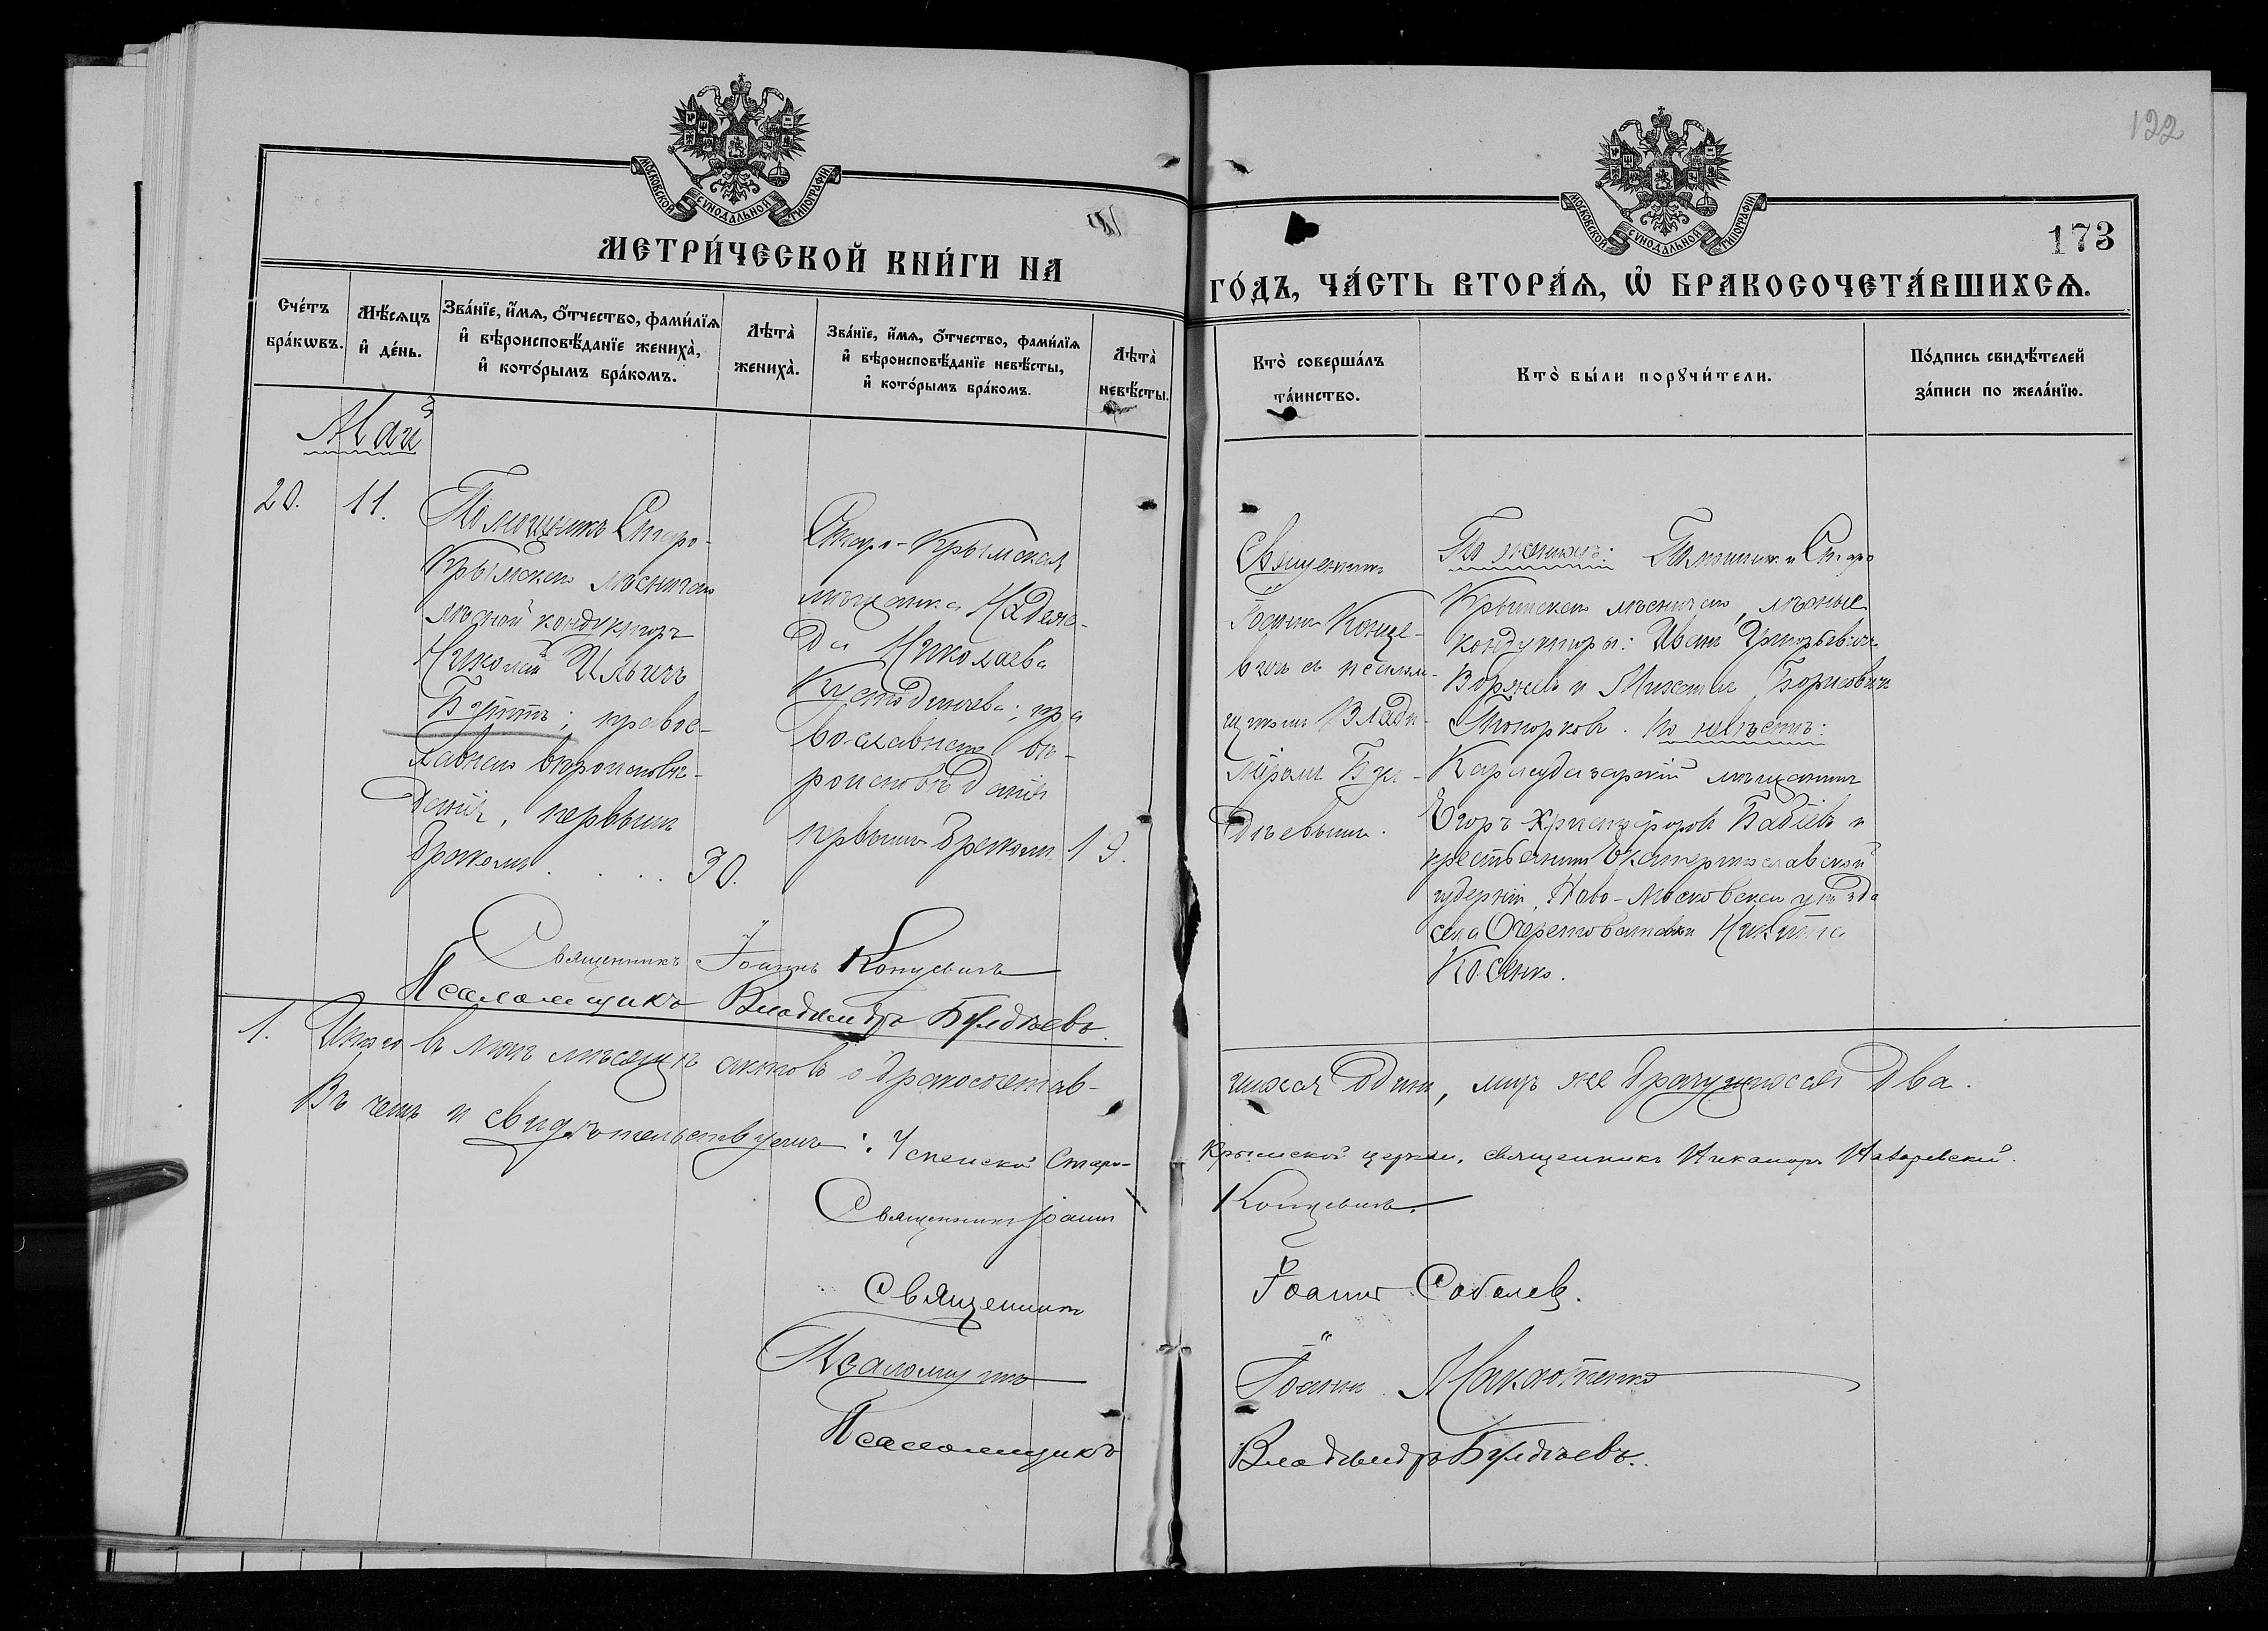 122
173
МОСКОВСКОЙ СѴНОДАЛЬНОЙ ТИПОГРАФІИ
МОСКОВСКОЙ СѴНОДАЛЬНОЙ ТИПОГРАФІИ
МЕТРИ́ЧЕСКОЙ КНИ́ГИ НА
ГО́ДЪ, ЧА́СТЬ ВТОРА́Ѧ, Ѡ҆ БРАКОСОЧЕТА́ВШИХСѦ.
Сче́тъ бра́кѡвъ.
Мѣ́сѧцъ и҆ де́нь.
Зва́нїе, и҆́мѧ, ѻ҆́тчество, фами́лїѧ
и҆ вѣроисповѣ́данїе жениха̀,
и҆ кото́рымъ бра́комъ.
Лѣта̀ жениха̀.
Зва́нїе, и҆́мѧ, ѻ҆́тчество, фами́лїѧ
и҆ вѣроисповѣ́данїе невѣ́сты,
и҆ кото́рымъ бра́комъ.
Лѣта̀ невѣ́сты.
Кто̀ соверша́лъ
та́инство.
Кто̀ бы́ли порꙋчи́тели.
По́дпись свидѣ́телей
за́писи по жела́нїю.
Май
20.
11.
Помощникъ Старо-
Крымскаго лѣсничаго
лѣсной кондукторъ
Николай Ильичъ
Буттъ; правос-
лавнаго вѣроисповѣ-
данія, первымъ
бракомъ . . . .
30.
Старо-Крымская
мѣщанка Надеж-
да Николаева
Кустодинчева; пра
вославнаго вѣ-
роисповѣданія
первымъ бракомъ
19.
Священникъ
Іоаннъ Конце-
вичъ съ псалом-
щикомъ Влади-
міромъ Бул-
дѣевымъ.
По женихѣ: Помощники Старо
Крымскаго лѣсничаго, лѣсные
кондукторы: Иванъ Григорьевичъ
и Михаилъ Борисовичъ
Топорковъ. По невѣстѣ:
Карасубазарскій мѣщанинъ
Егоръ Христофоровъ Бабіевъ и
крестьянинъ Екатеринославской
губерніи, Ново-Московскаго уѣзда
села Очеретоватаго Никита
Косенко.
Священникъ Іоаннъ Концевичъ
Псаломщикъ Владиміръ Булдѣевъ.
1. Итого въ маѣ мѣсяцѣ актовъ о бракосочетав-
шихся одинъ, лицъ же брачущихся два.
Въ чемъ и свидѣтельствуемъ: Успенской Старо-
Крымской церкви, священникъ Никаноръ
Священникъ Іоаннъ
Концевичъ.
Священникъ
Іоаннъ Соболевъ.
Псаломщикъ
Іоаннъ
Псаломщикъ
Владиміръ Булдѣевъ.